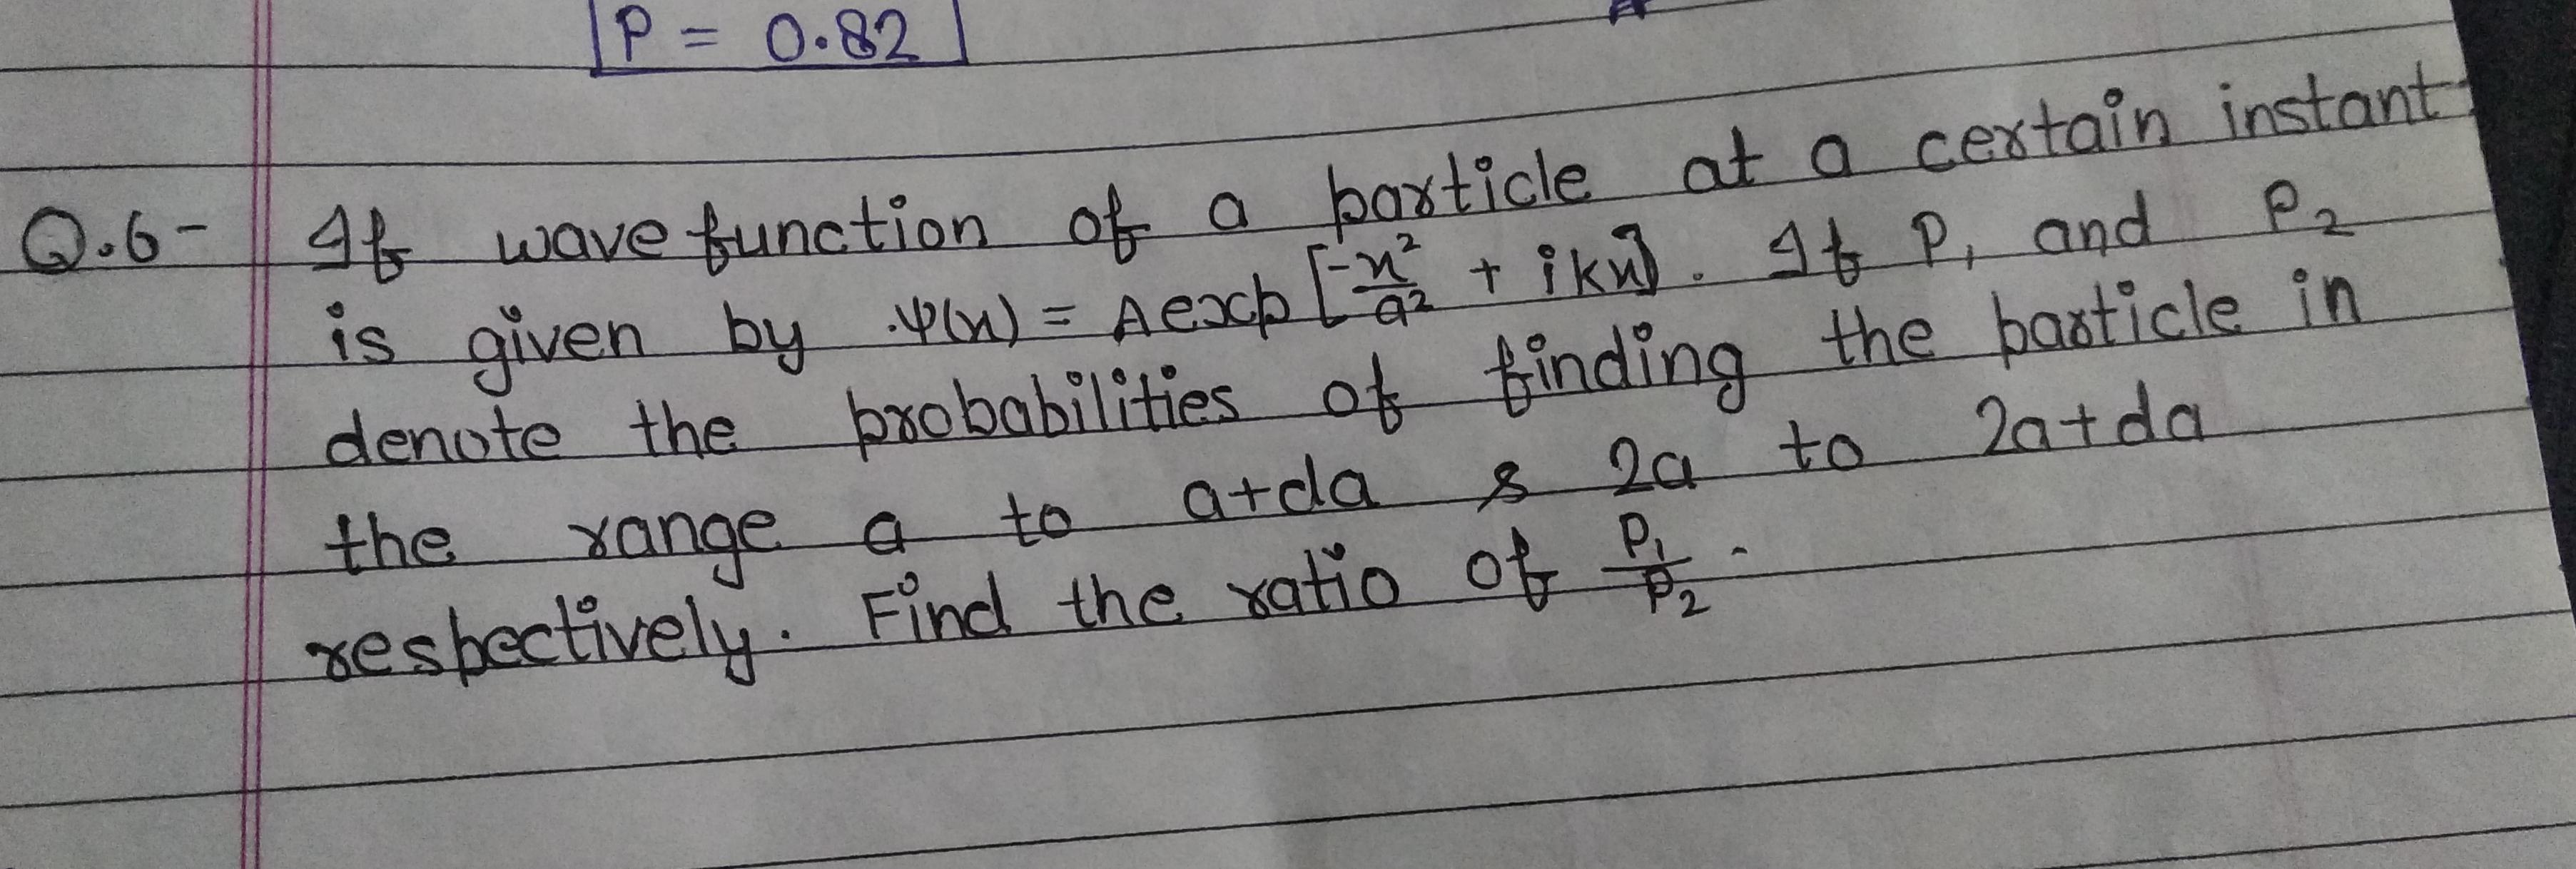 P = 0.82
Q.6- If wave function of a particle at a certain instant
is given by ψ(x) = A exp [-x²/a² + ikx]. If P₁ and P₂
denote the probabilities of finding the particle in
the range a to a+da & 2a to 2a+da
respectively. Find the ratio of P₁/P₂.